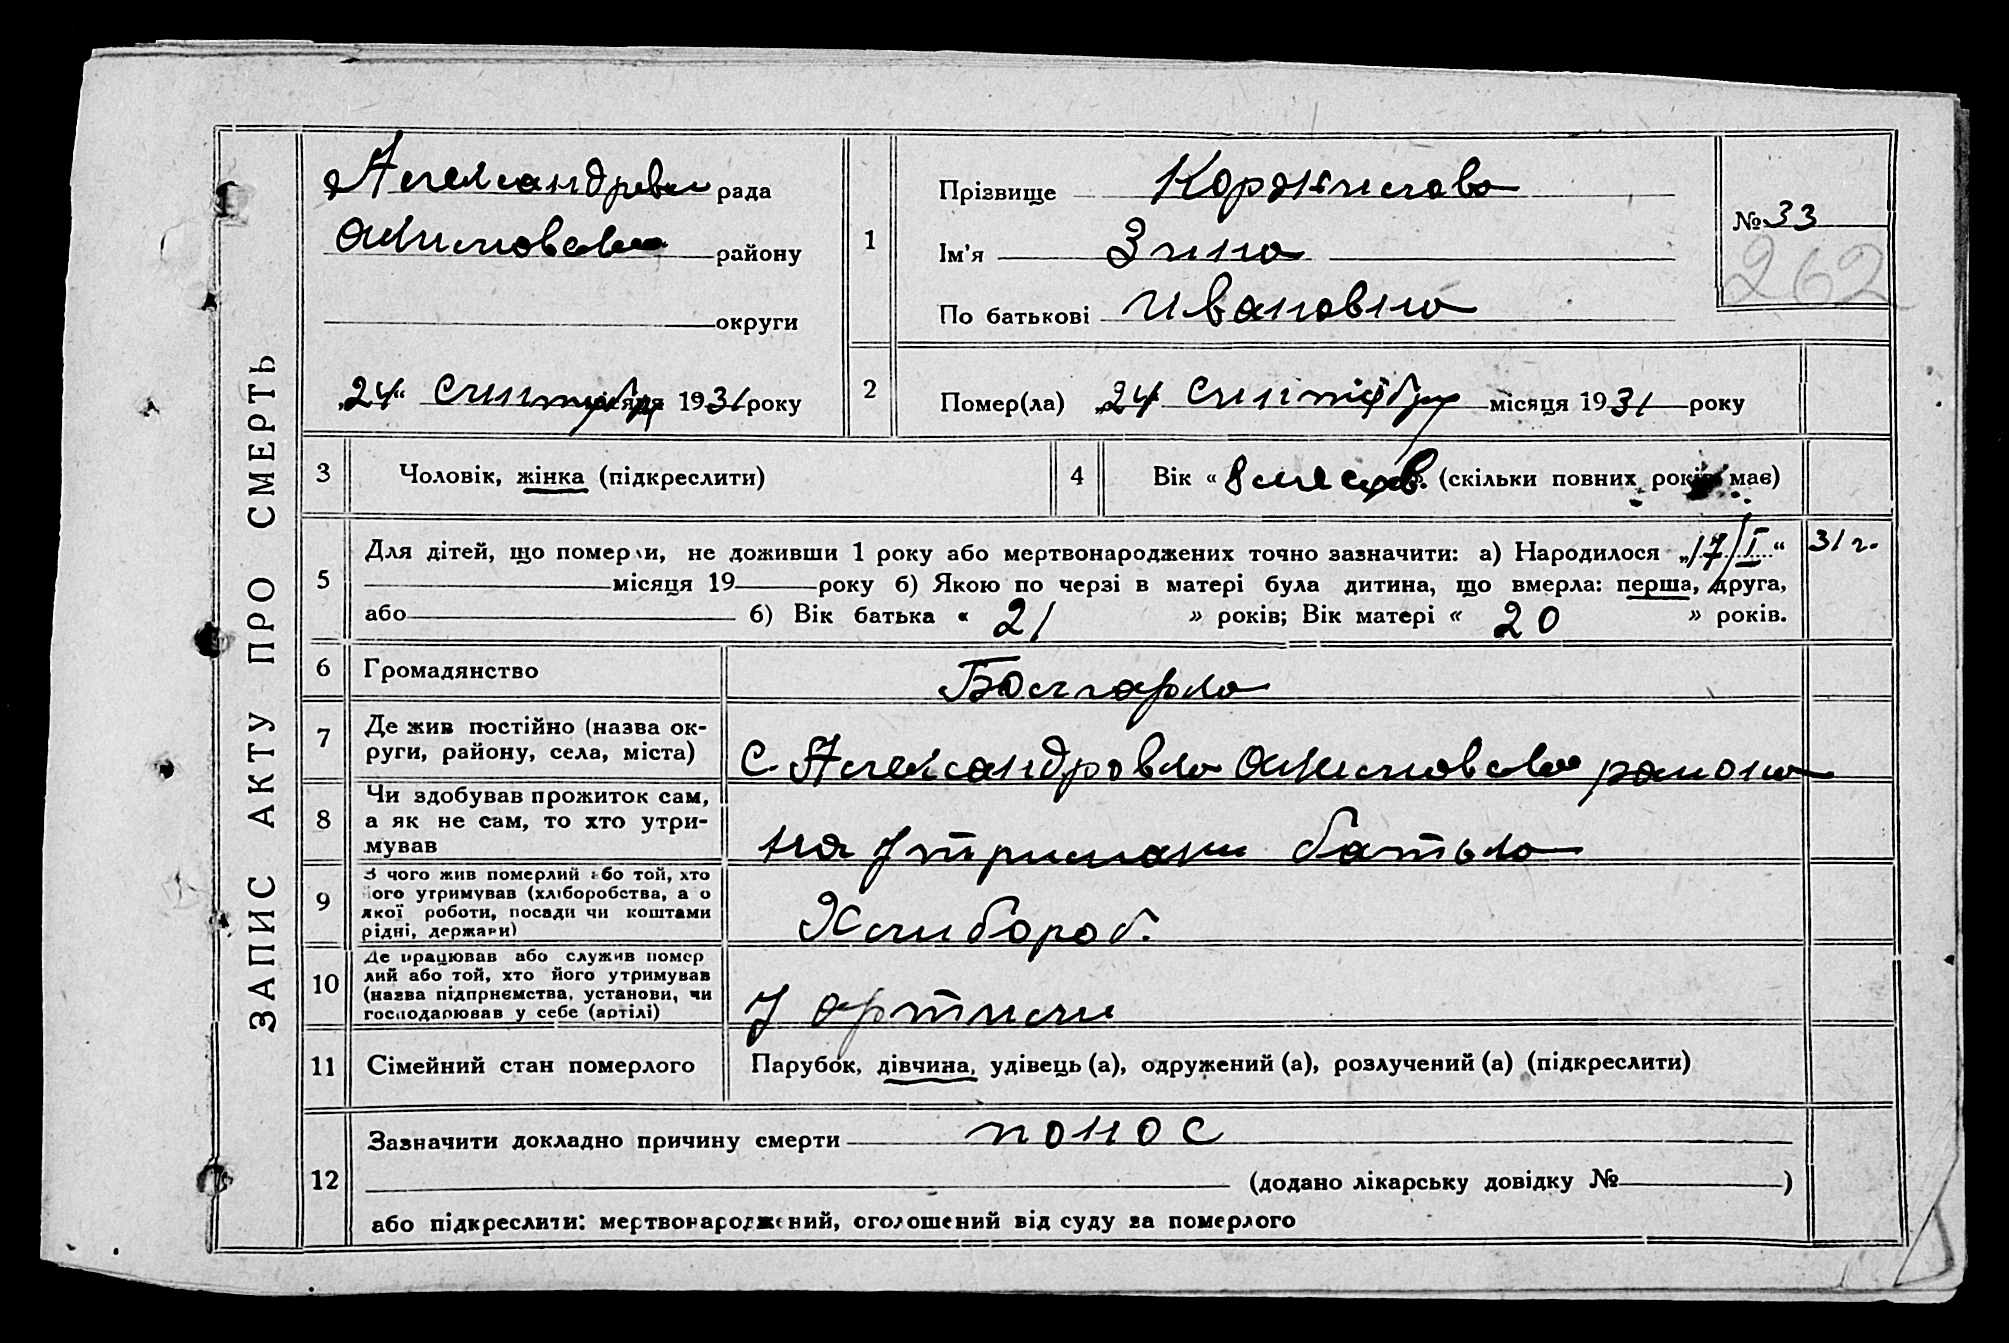 ЗАПИС АКТУ ПРО СМЕРТЬ
Александревск рада
Акимовська району
округи
„24“ синтября місяця 1931 року
1
Прізвище Коржилова
Ім'я Зина
По батькові Ивановна
№ 33
262
2
Помер(ла) „24 Синтября місяця 1931 року
3
Чоловік, жінка (підкреслити)
4
Вік « 8 месяцов. (скільки повних років має)
5
Для дітей, що померли, не доживши 1 року або мертвонароджених точно зазначити: а) Народилося „17/I“ 31 г.
місяця 19 року б) Якою по черзі в матері була дитина, що вмерла: перша, друга,
або б) Вік батька « 21 » років; Вік матері « 20 » років.
6
Громадянство
Болгарка
7
Де жив постійно (назва ок-
руги, району, села, міста)
С. Александровка Акимовська района
8
Чи здобував прожиток сам,
а як не сам, то хто утри-
мував
на утримани батька
9
З чого жив померлий або той, хто
його утримував (хліборобства, а о
якої роботи, посади чи коштами
рідні, держави)
Хлибороб.
10
Де працював або служив помер
лий або той, хто його утримував
(назва підприємства, установи, чи
господарював у себе (артілі)
У артили
11
Сімейний стан померлого
Парубок, дівчина, удівець (а), одружений (а), розлучений (а) (підкреслити)
12
Зазначити докладно причину смерти понос
(додано лікарську довідку № )
або підкреслити: мертвонароджений, оголошений від суду за померлого